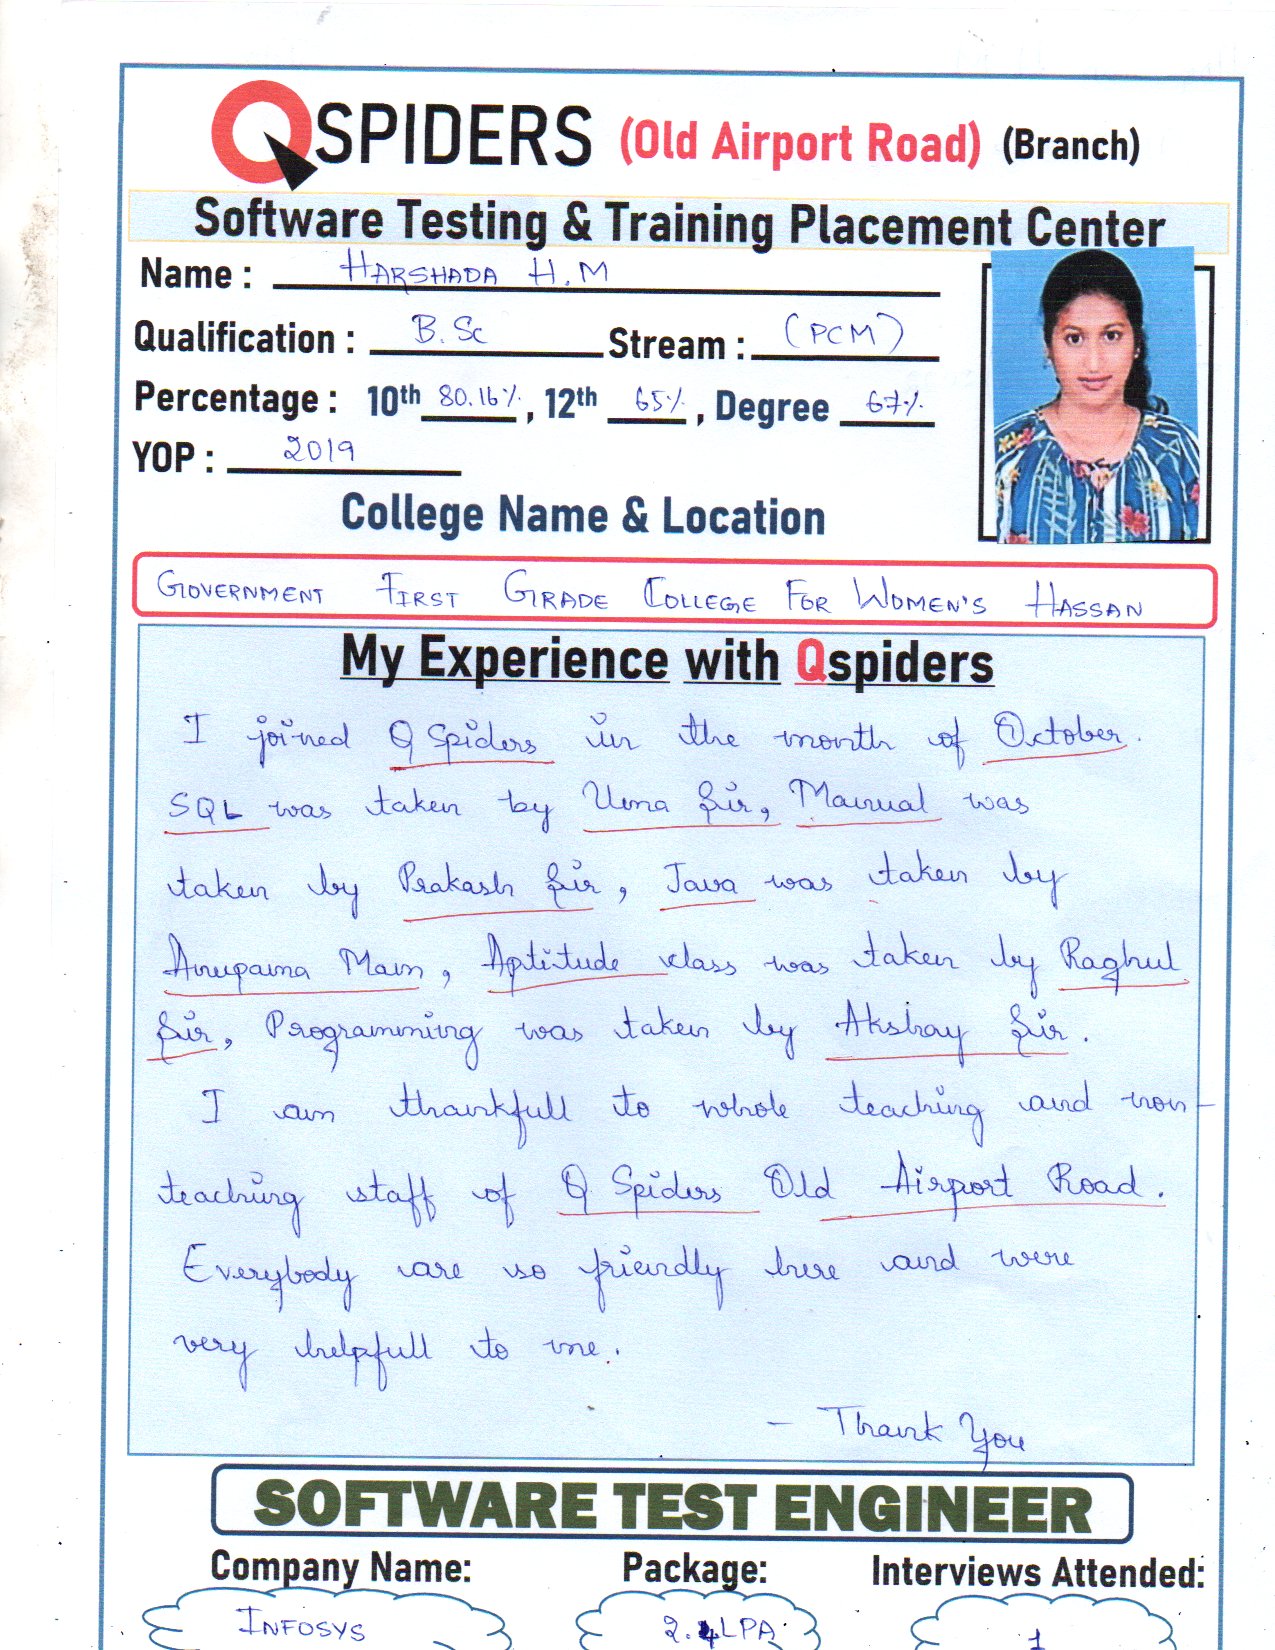 QSPIDERS (Old Airport Road) (Branch)
Software Testing & Training Placement Center
Name : HARSHADA H.M
Qualification : B.Sc Stream : (PCM)
Percentage : 10th 80.16% , 12th 65% , Degree 67%
YOP : 2019
College Name & Location
GOVERNMENT FIRST GRADE COLLEGE FOR WOMEN'S HASSAN
My Experience with Qspiders
I joined Q Spiders in the month of October.
SQL was taken by Uma Sir, Manual was
taken by Prakash Sir, Java was taken by
Anupama Mam, Aptitude class was taken by Raghul
Sir, Programming was taken by Akshay Sir.
I am thankfull to whole teaching and non-
teaching staff of Q Spiders Old Airport Road.
Everybody are so friendly here and were
very helpfull to me.
- Thank You
SOFTWARE TEST ENGINEER
Company Name: Package: Interviews Attended:
INFOSYS 2.4LPA 1